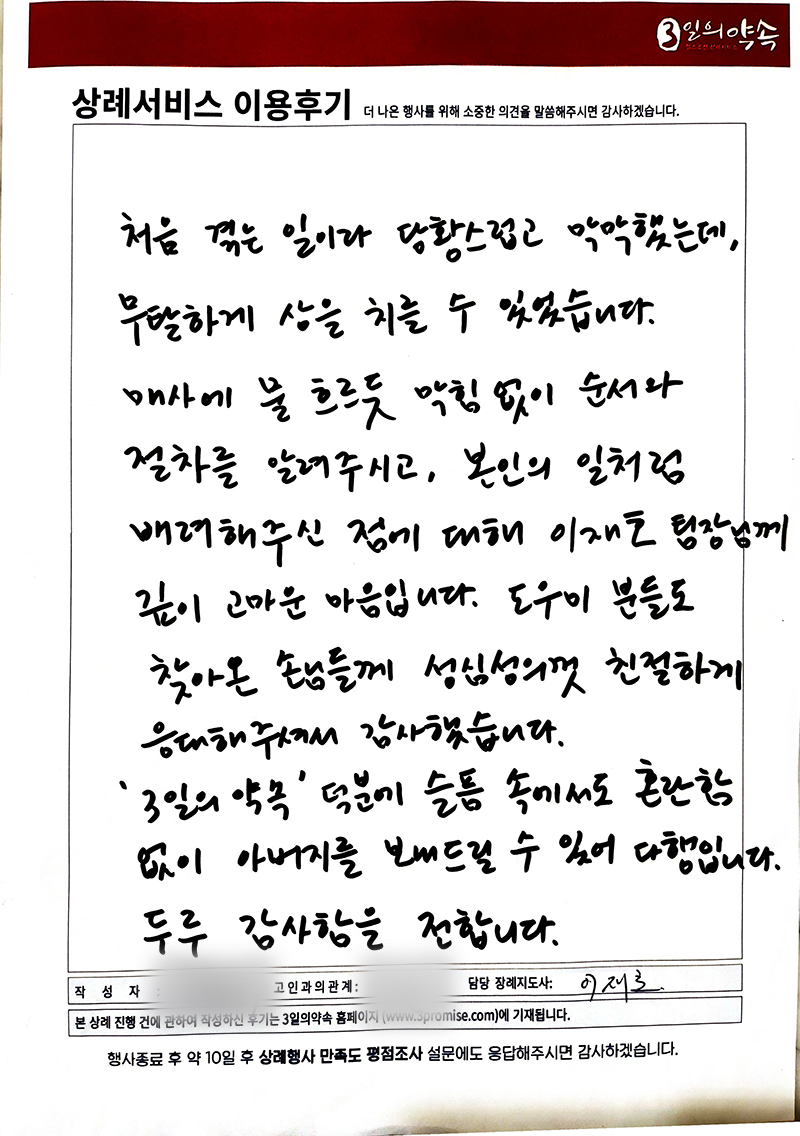 3일의약속
상례서비스 이용후기 더 나은 행사를 위해 소중한 의견을 말씀해주시면 감사하겠습니다.
처음 겪는 일이라 당황스럽고 막막했는데,
무탈하게 상을 치를 수 있었습니다.
매사에 물 흐르듯 막힘 없이 순서와
절차를 알려주시고, 본인의 일처럼
배려해주신 점에 대해 이재호 팀장님께
깊이 고마운 마음입니다. 도우미 분들도
찾아온 손님들께 성심성의껏 친절하게
응대해주셔서 감사했습니다.
'3일의 약속' 덕분에 슬픔 속에서도 혼란함
없이 아버지를 보내드릴 수 있어 다행입니다.
두루 감사함을 전합니다.
작 성 자 : 고인과의관계: 담당 장례지도사: 이재호
본 상례 진행 건에 관하여 작성하신 후기는 3일의약속 홈페이지 (www.3promise.com)에 기재됩니다.
행사종료 후 약 10일 후 상례행사 만족도 평점조사 설문에도 응답해주시면 감사하겠습니다.